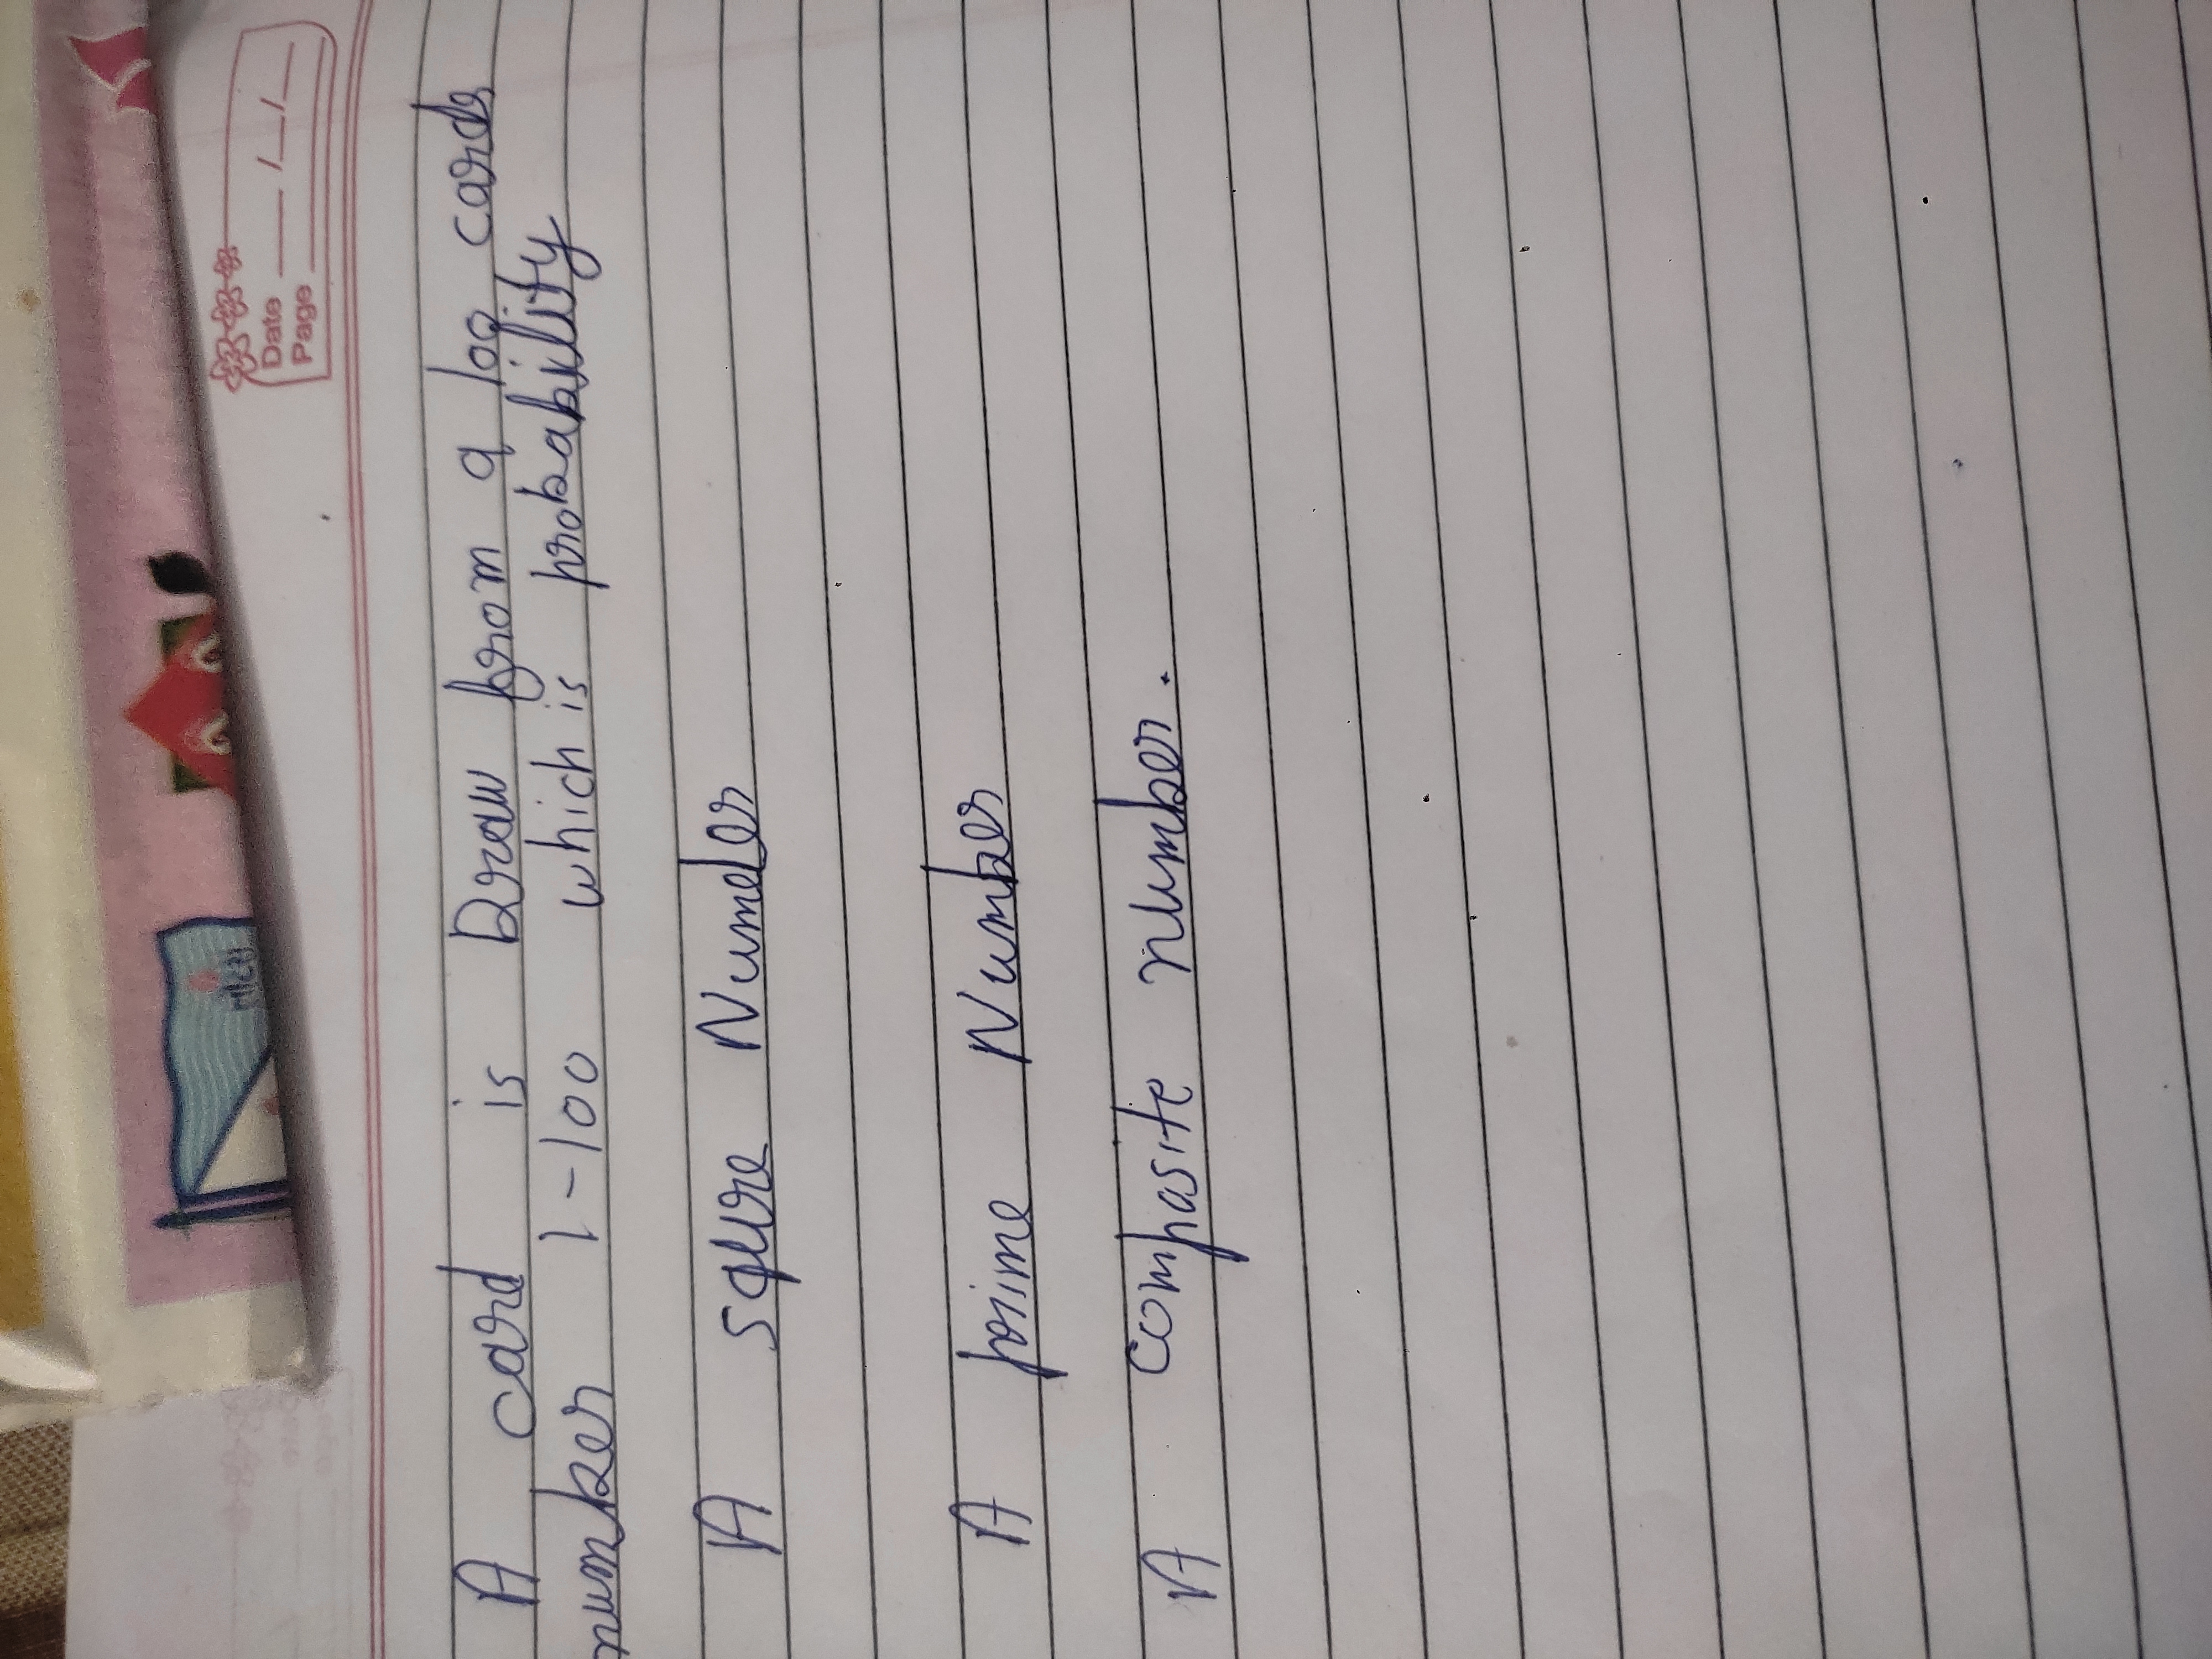 Date
Page
A card is Draw from a 100 cards
number 1-100 which is probability
A squre Number
A prime Number
A composite number.